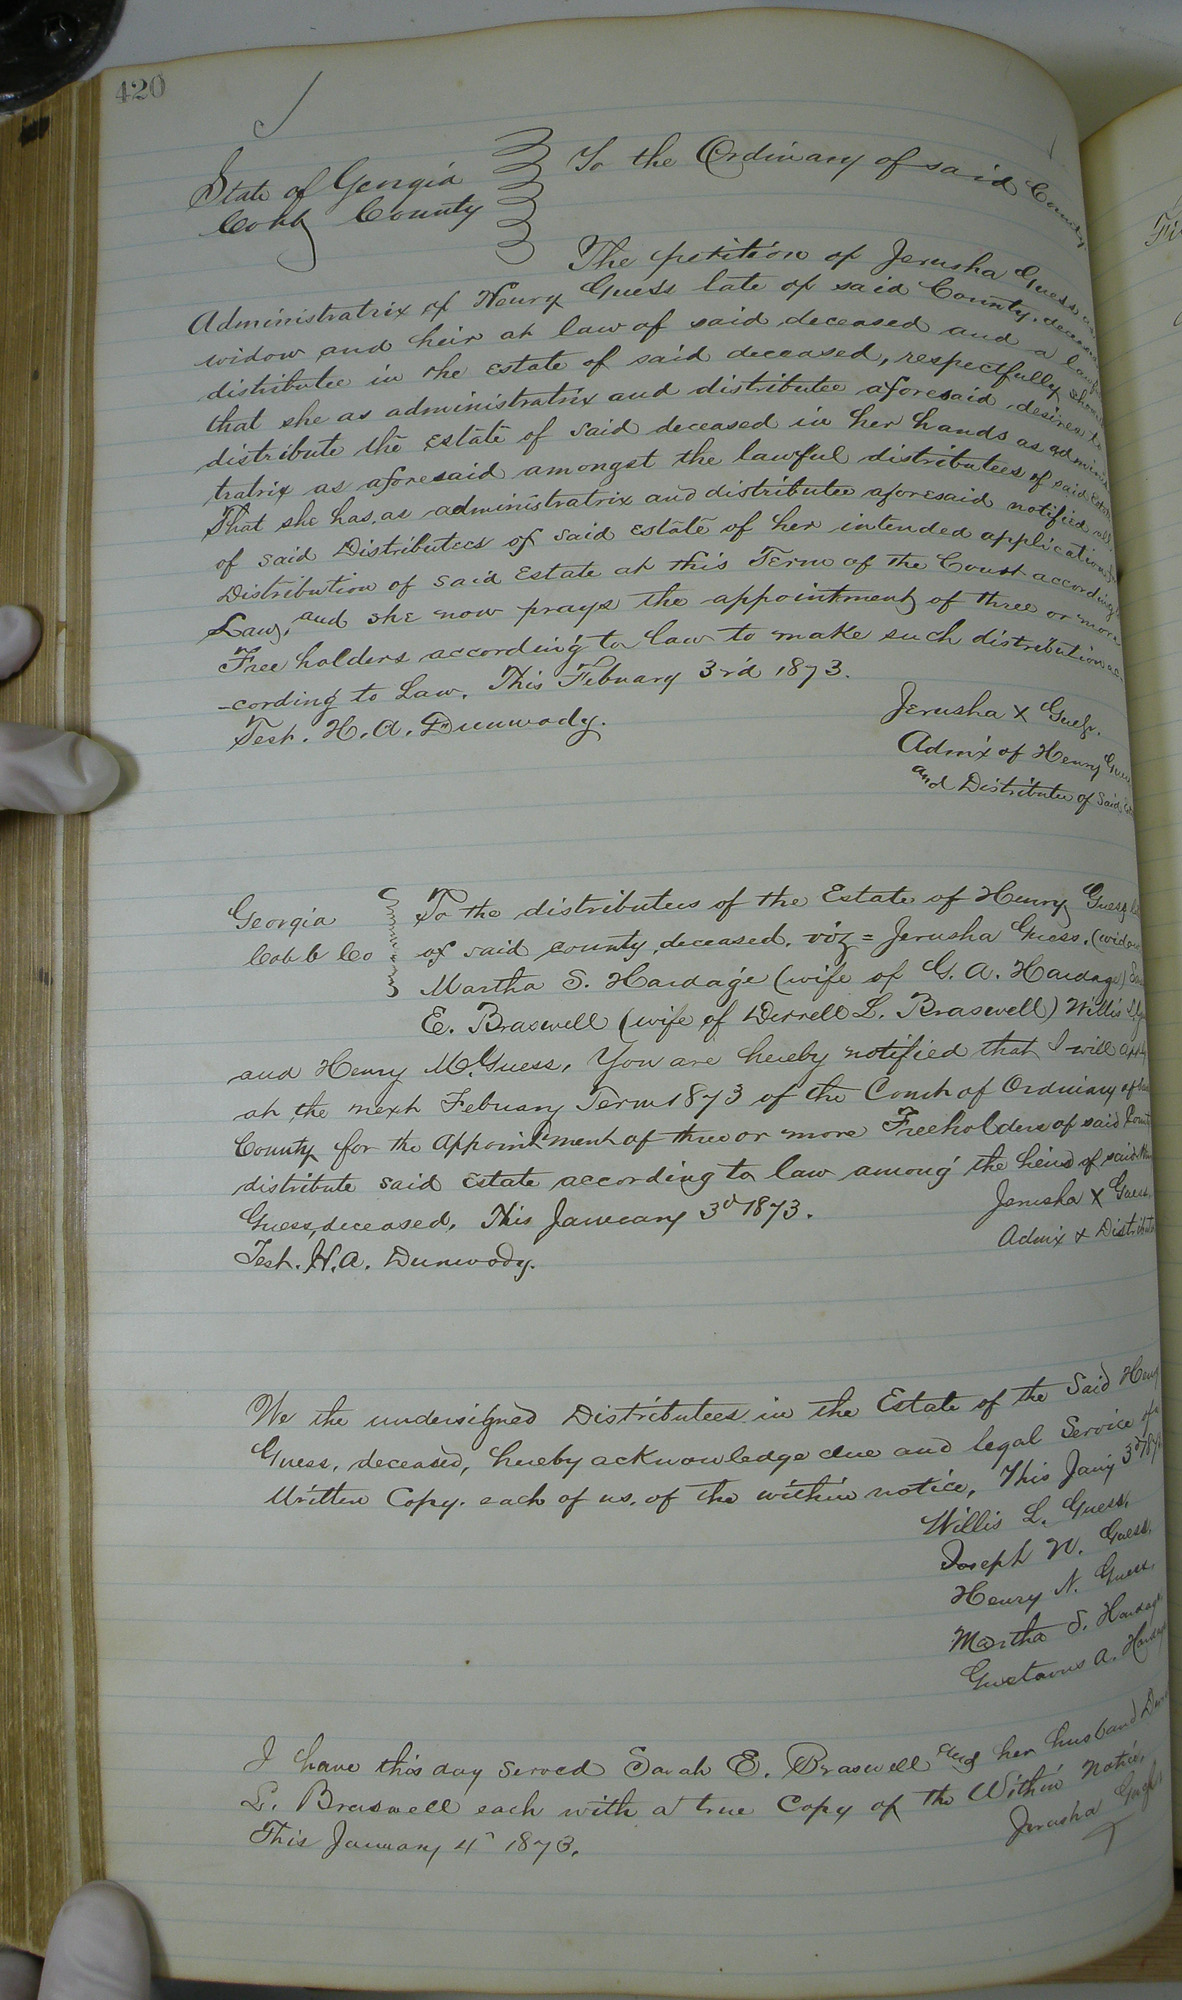 420
State of Georgia
Cobb County
To the Ordinary of said County
The petition of Jerusha Guess, as
Administratrix of Henry Guess late of said County, deceased
widow and heir at law of said deceased and a lawful
distributee in the estate of said deceased, respectfully shows
that she as administratrix and distributee aforesaid, desires to
distribute the estate of said deceased in her hands as adminis
tratrix as aforesaid amongst the lawful distributees of said estate
That she has, as administratrix and distributee aforesaid notified all
of said Distributees of said estate of her intended application for
Distribution of said Estate at this Term of the Court according
Law, and she now prays the appointment of three or more
Free holders according to law to make such distribution ac-
-cording to Law. This Febuary 3rd 1873.
Test. H. A. Dunwody.
Jerusha X Guess.
Admx of Henry Guess
and Distributee of Said
Georgia
Cobb Co
To the distributees of the Estate of Henry Guess
of said county, deceased. viz = Jerusha Guess, (widow
Martha S. Hardage (wife of G. A. Hardage)
E. Braswell (wife of Derrell L. Braswell) Willis L.
and Henry M. Guess, You are hereby notified that I will apply
at the next Febuary Term 1873 of the Court of Ordinary of
County for the Appointment of three or more Freeholders of said County
distribute said Estate according to law among the heirs of said
Guess, deceased. This January 3d 1873.
Jerusha X Guess.
Admx & Distribut
Test. H. A. Dunwody.
We the undersigned Distributees in the Estate of the Said Henry
Guess, deceased, hereby acknowledge due and legal Service of
Written Copy. each of us, of the within notice, This Jany 3rd
Willis L. Guess.
Joseph N. Guess.
Henry N. Guess.
Martha S. Hardage
Gustavus A. Hardage
I have this day served Sarah E. Braswell and her husband
L. Braswell each with a true Copy of the Within Notice,
This January 4th 1873.
Jerusha Guess
X